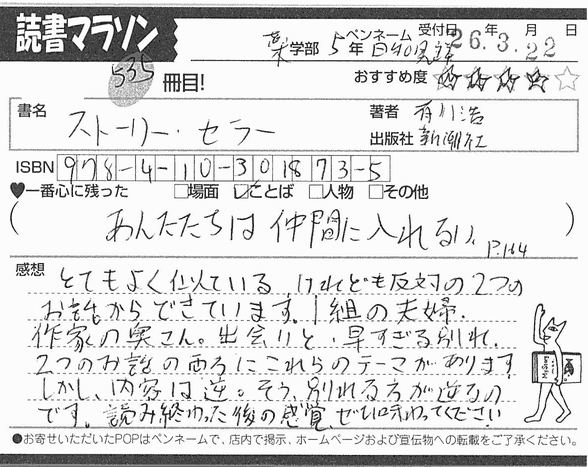 読書マラソン
535 冊目!
薬学部 5年 ペンネーム 日和見 受付日 26年3月22日
おすすめ度 ★★★★☆
書名 ストーリー・セラー
著者 有川浩
出版社 新潮社
ISBN 978-4-10-301873-5
♥一番心に残った □場面 ☑ことば □人物 □その他
(あんたたちは仲間に入れない P.164)
感想
とてもよく似ている けれども反対の2つの
お話からできています。1組の夫婦.
作家の奥さん。出会いと、早すぎる別れ.
2つのお話の両方にこれらのテーマがあります
しかし、内容は逆。そう、別れる方が逆なの
です。読み終わった後の感覚、ぜひ味わってください
●お寄せいただいたPOPはペンネームで、店内で掲示、ホームページおよび宣伝物への転載をご了承ください。